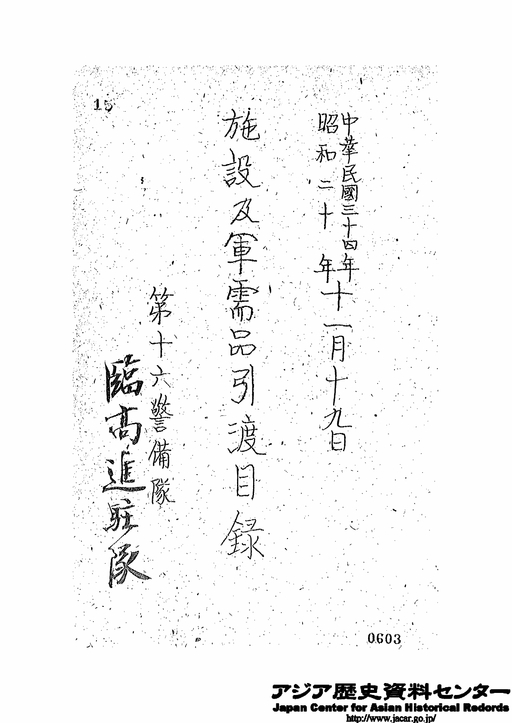 15
中華民國三十四年
昭和二十年十一月十九日
施設及軍需品引渡目録
第十六警備隊
臨高進駐隊
0603
アジア歴史資料センター
Japan Center for Asian Historical Records
http://www.jacar.go.jp/